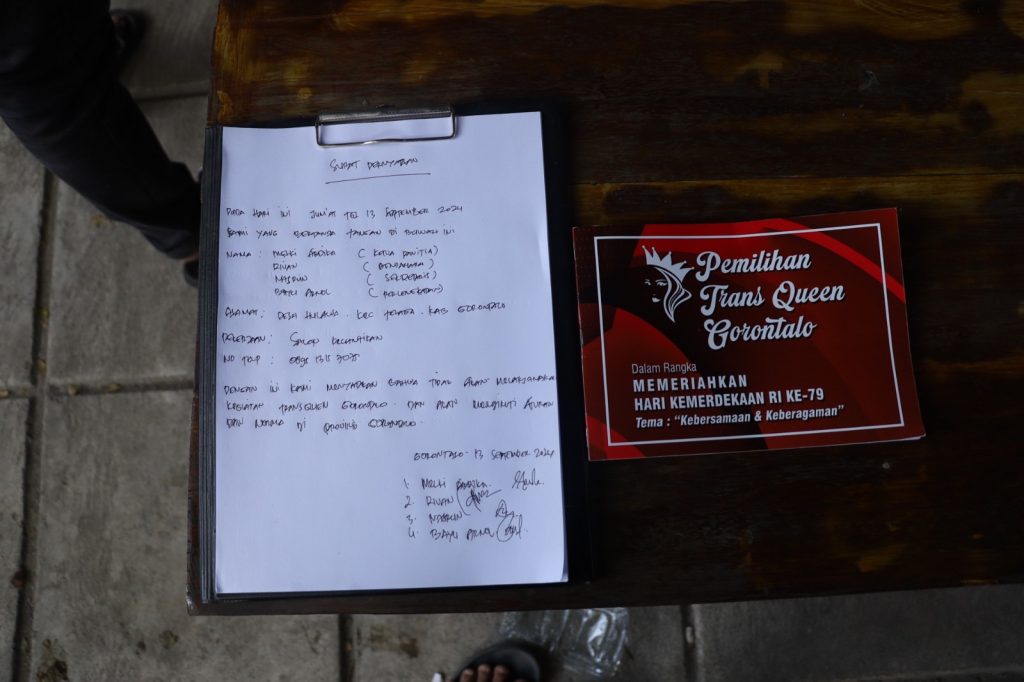 SURAT PERNYATAAN
PADA HARI INI JUM'AT TGL 13 SEPTEMBER 2024
KAMI YANG BERTANDA TANGAN DI BAWAH INI
NAMA : MELKI (KETUA PANITIA)
RIVAN (BENDAHARA)
NASRUN (SEKRETARIS)
BAYU ARNOL (PERLENGKAPAN)
ALAMAT : DESA HULAWA. KEC TELAGA. KAB GORONTALO
PEKERJAAN : SALON KECANTIKAN
NO TELP :
DENGAN INI KAMI MENYATAKAN BAHWA TIDAK AKAN MELAKSANAKAN
KEGIATAN TRANSQUEEN GORONTALO. DAN AKAN MENGIKUTI ATURAN
DAN NORMA DI PROVINSI GORONTALO.
GORONTALO. 13 SEPTEMBER 2024
1. MELKI
2. RIVAN
3. NASRUN
4. BAYU ARNOL
Pemilihan
Trans Queen
Gorontalo
Dalam Rangka
MEMERIAHKAN
HARI KEMERDEKAAN RI KE-79
Tema : "Kebersamaan & Keberagaman"